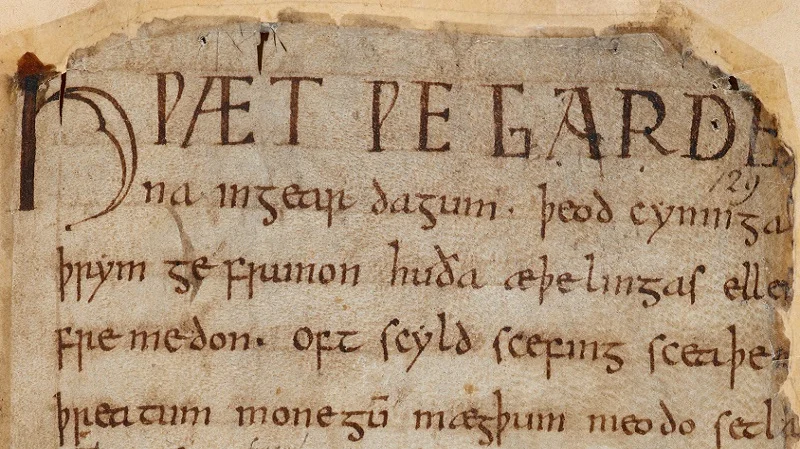 HǷÆT ǷE GARDE
na ingear dagum. þeod cyninga
þrym ge frunon huða æþelingas ellen
fremedon. oft scyld scefing sceaþe
þreatum monegū mægþum meodo setla
129